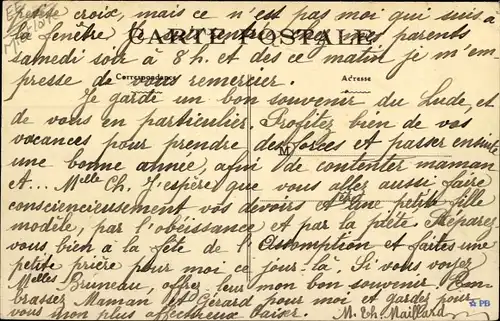 petite croix, mais ce n'est pas moi qui suis à
la fenêtre
CARTE POSTALE
parents
samedi soir à 8h. et dès ce matin je m'em-
Correspondance
Adresse
presse de vous remercier.
Je gardi un bon souvenir du Lude, et
de vous en particulier. Profitez bien de vos
vacances pour prendre des forces et passer ensuite
une bonne année, afin de contenter maman
et... Melle Ch. J'espère que vous allez aussi faire
consciencieusement vos devoirs et une petite fille
modèle, par l'obéissance et par la piété. Préparez
vous bien à la fête de l'Assomption et faites une
petite prière pour moi ce jour-là. Si vous voyez
Melles Bruneau, offrez leur mon bon souvenir. Em-
brassez Maman et Gérard pour moi et gardez pour
vous mon plus affectueux baiser. M. Th. Maillard
PB